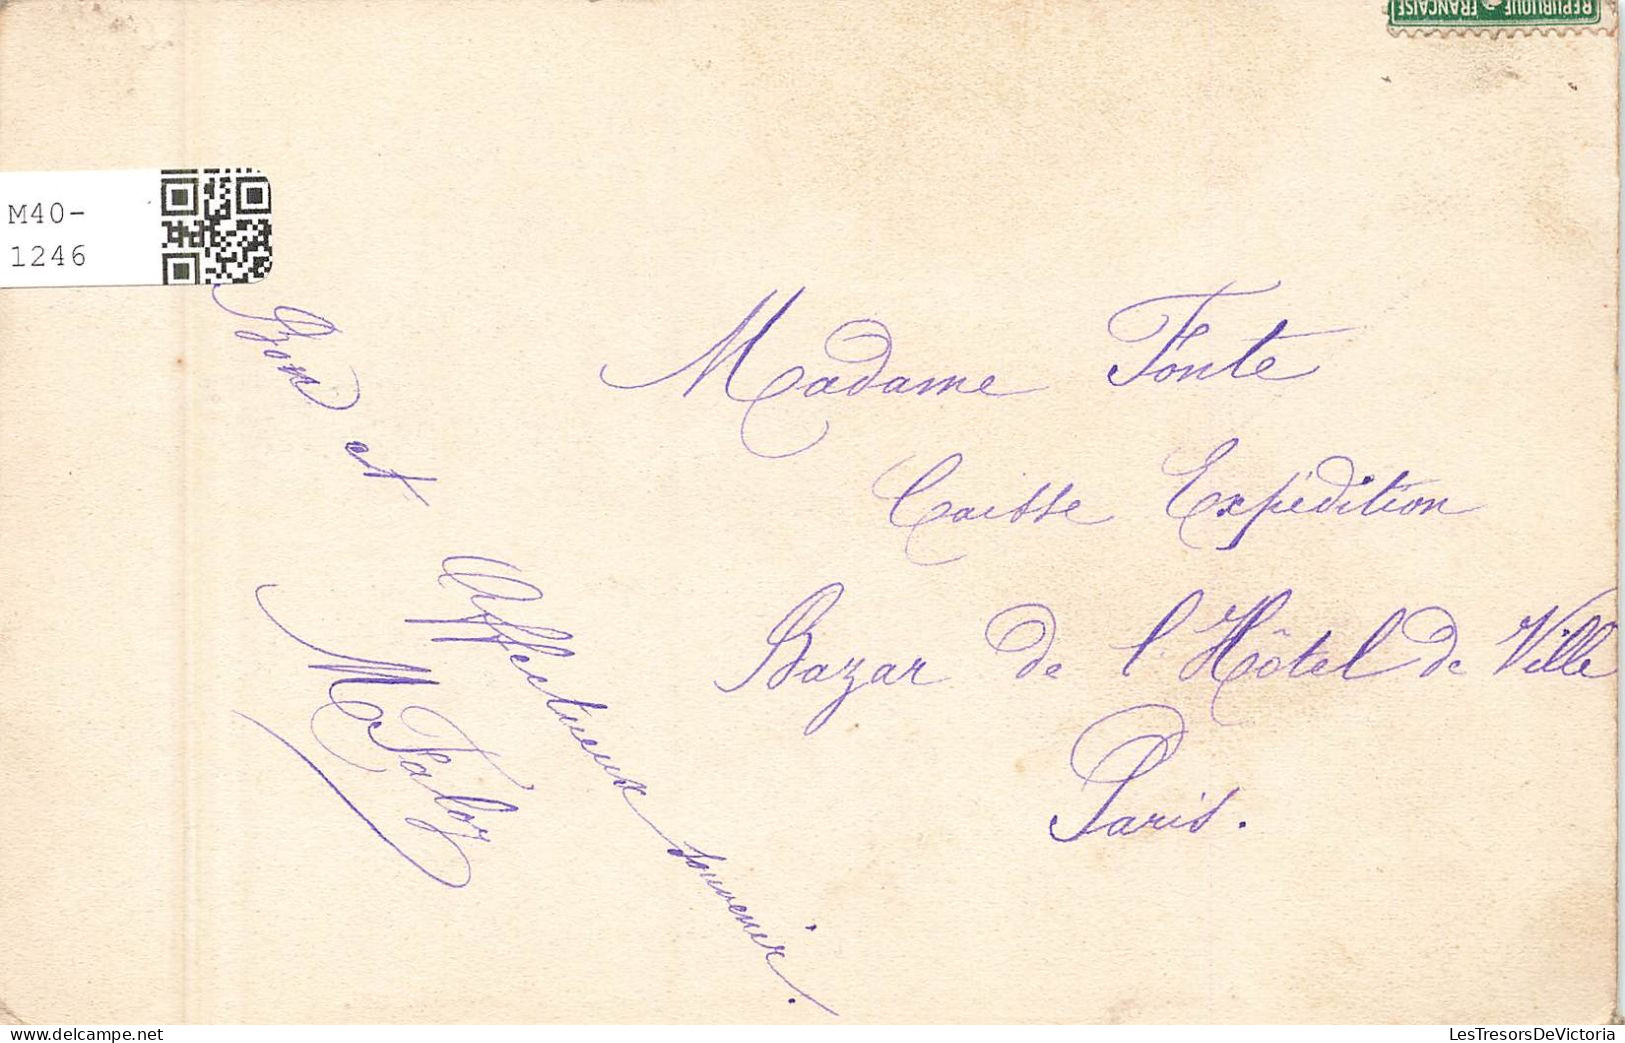 REPUBLIQUE FRANÇAISE
M40-
1246
Bon et Affectueux souvenir.
Madame Fonte
Caisse Expédition
Bazar de l'Hôtel de Ville
Paris.
LesTresorsDeVictoria